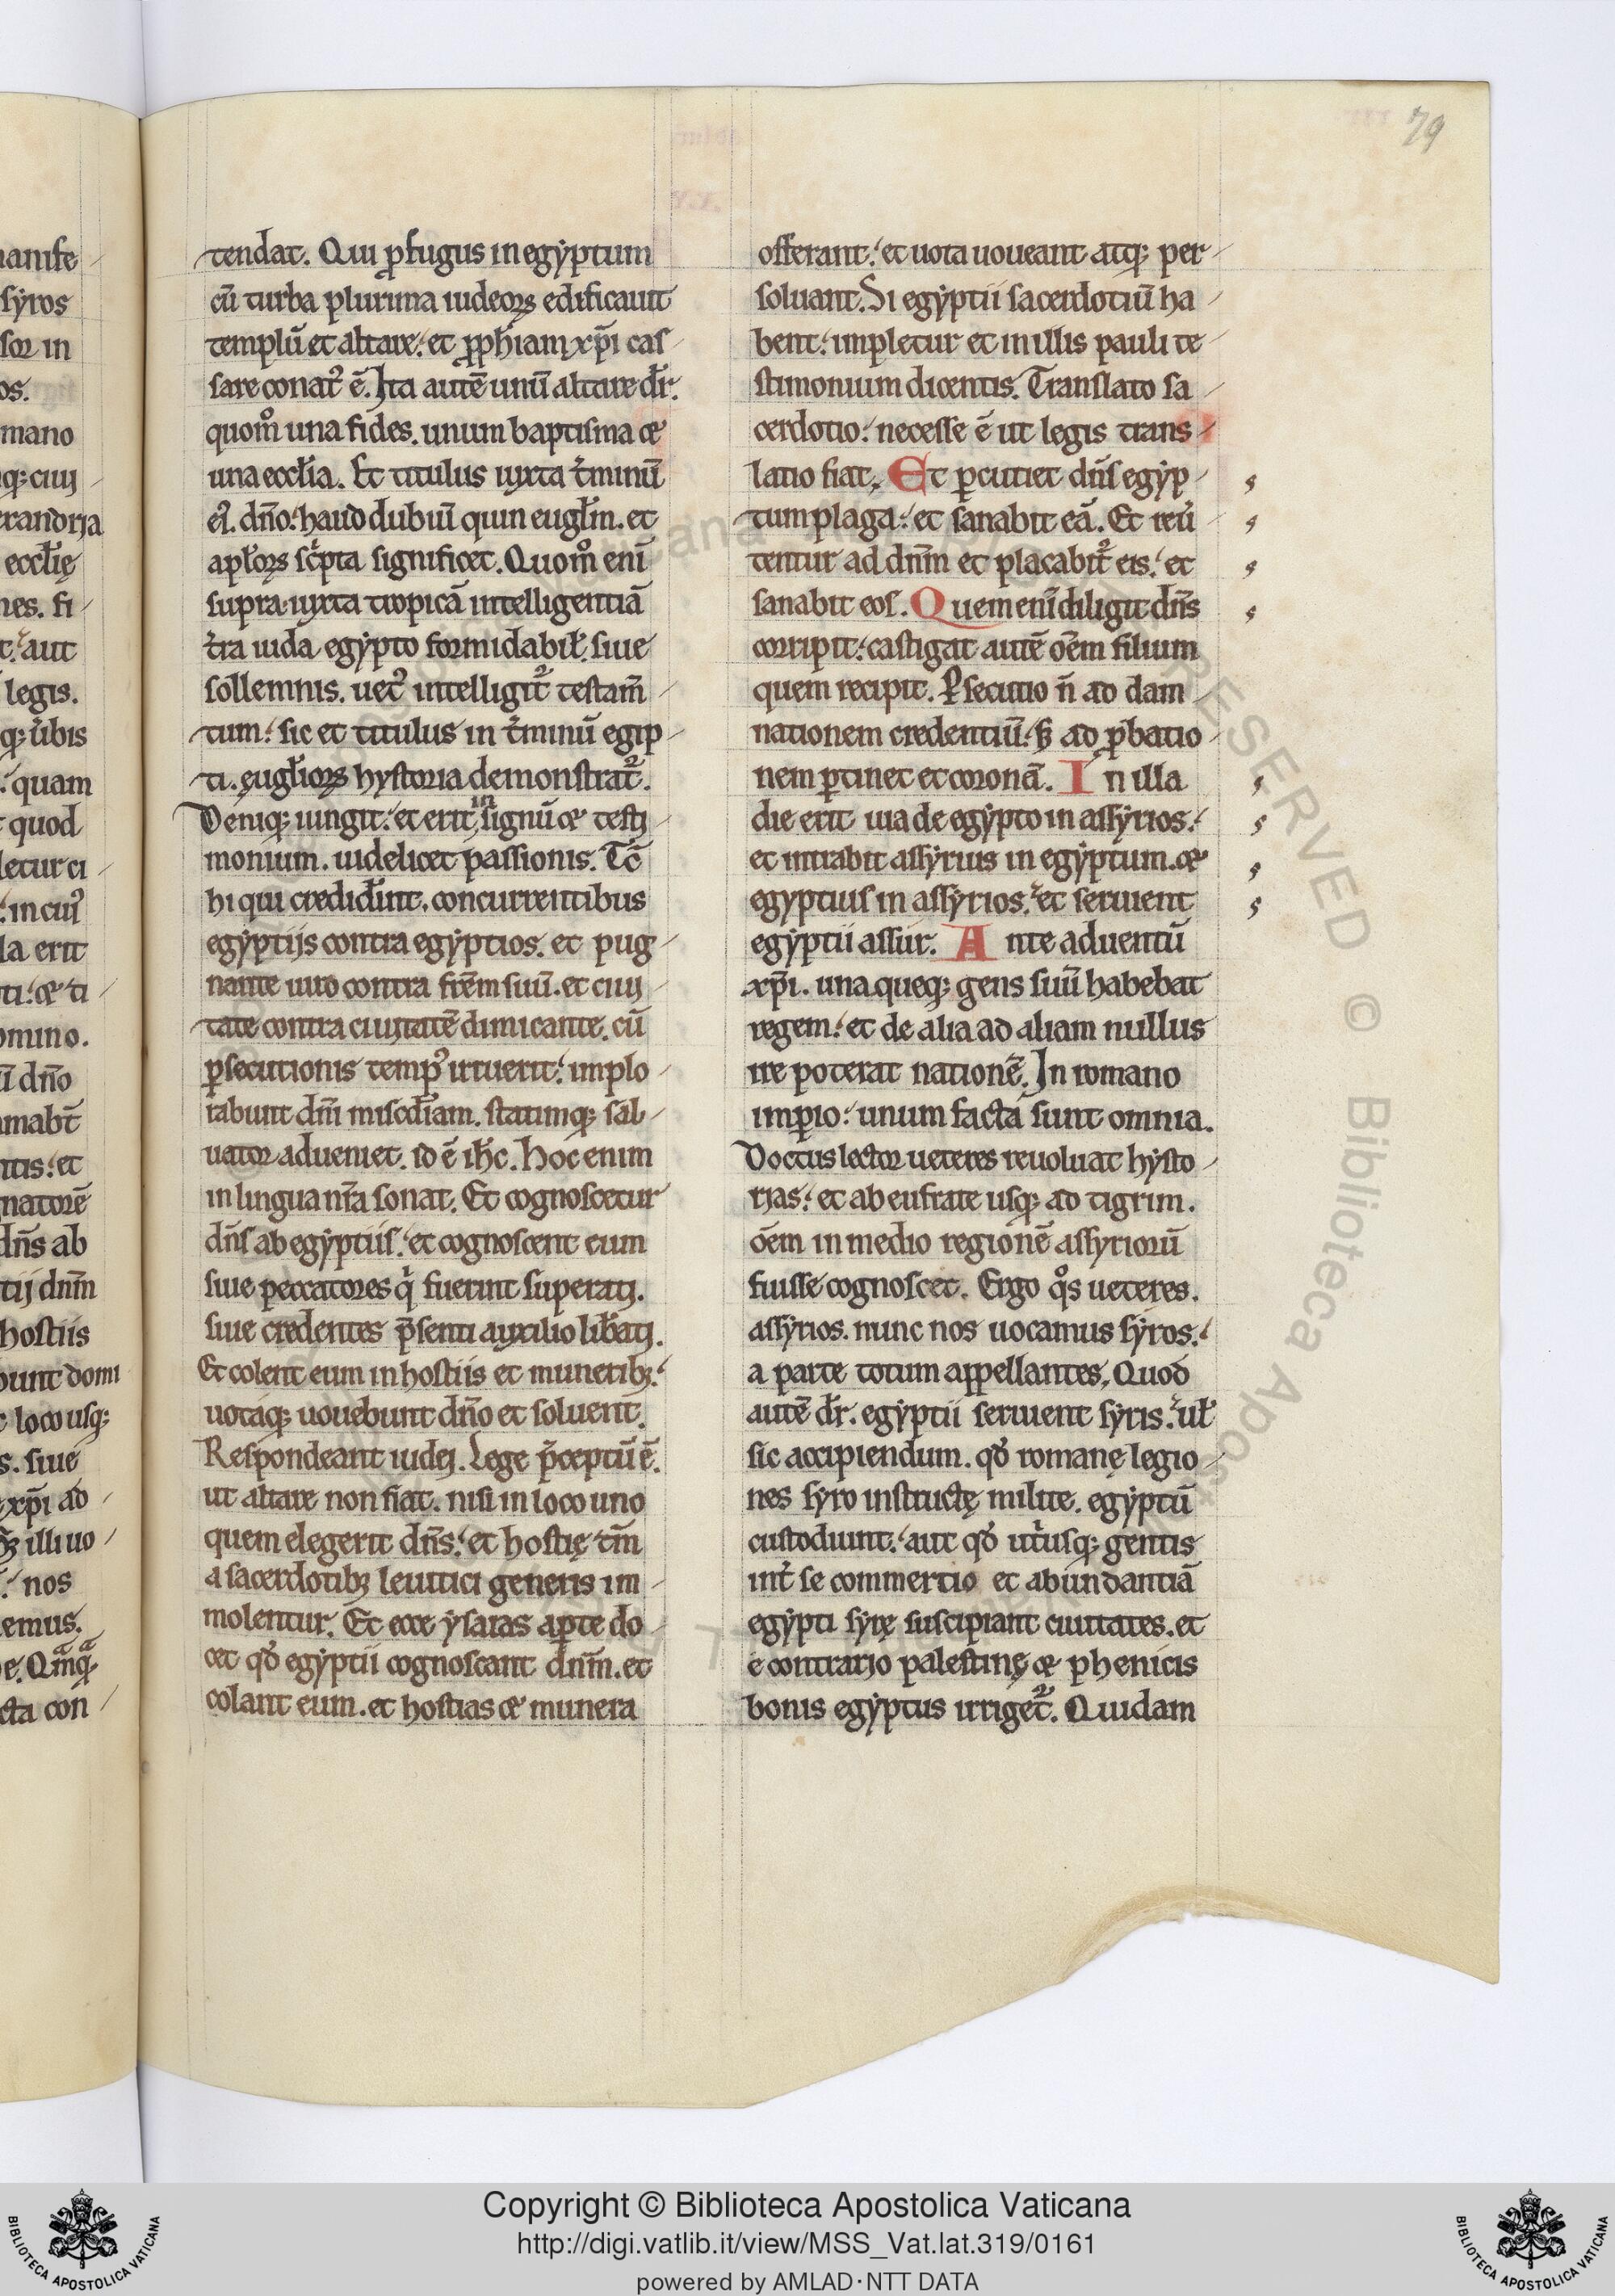 79
tendat. Qui ꝓfugus in egyptum
cū turba plurima iudeoꝝ edificauit
templū et altare. et ꝓph̄iam xp̄i cas
sare conat᷒ ē. Ita autē unū altare dr̄.
quom̊ una fides. unum baptisma &
una eccl̄ia. Et titulus iuxta t̄minū
ei᷒. dn̄o. haud dubiū quin eugl̄m. et
apl̄oꝝ sc̄pta significet. Quom̊ enī
supra iuxta tropicā intelligentiā
t̄ra iuda egypto formidabil̄. siue
sollemnis. uet᷒ intelligit᷑ testam̄
tum. sic et titulus in t̄minū egip
ti. ęugl̄ioꝝ hystoria demonstrat᷑.
Deniq; iungit. et erit in signū & testi
monium. uidelicet passionis. Tc̄
hi qui credider̄t. concurrentibus
egyptijs contra egyptios. et pug
nante uiro contra fr̄em suū. et ciui
tate contra ciuitatē dimicante. cū
ꝑsecutionis temp᷒ irruerit. implo
rabunt dn̄i misc̄diam. statimq; sal
uator adueniet. id ē ih̄c. Hoc enim
in lingua nr̄a sonat. Et cognoscetur
dn̄s ab egyptiis. et cognoscent eum
siue peccatores qⁱ fuerint superati.
siue credentes p̄senti auxilio lib̄ati.
Et colent eum in hostiis et munerib;.
uotaq; uouebunt dn̄o et soluent.
Respondeant iudei. Lege p̄ceptū ē.
ut altare non fiat. nisi in loco uno
quem elegerit dn̄s. et hostię tm̄
a sacerdotib; leuitici generis im
molentur. Et ecce ysaias aꝑte do
cet qđ egyptii cognoscant dn̄m. et
colant eum. et hostias & munera
offerant. et uota uoueant atq; per
soluant. Si egyptii sacerdotiū ha
bent. impletur et in illis pauli te
stimonium dicentis. Translato sa
cerdotio. necesse ē ut legis trans
latio fiat. Et ꝑcutiet dn̄s egyp
tum plaga. et sanabit eā. Et reu̾
tentur ad dn̄m et placabit᷑ eis. et
sanabit eos. Quem enī diligit dn̄s
corripit. castigat autē om̄em filium
quem recipit. Ꝑsecutio n̄ ad dam
nationem credentiū. ꝫ ad ꝓbatio
nem ꝑtinet et coronā. In illa
die erit uia de egypto in assyrios.
et intrabit assyrius in egyptum. &
egyptius in assyrios. et seruient
egyptii assur. Ante aduentū
xp̄i. una queq; gens suū habebat
regem. et de alia ad aliam nullus
ire poterat nationē. In romano
imꝑio. unum facta sunt omnia.
Doctus lector ueteres reuoluat hysto
rias. et ab eufrate usq; ad tigrim.
om̄em in medio regionē assyriorū
fuisse cognoscet. Ergo qo̊s ueteres.
assyrios. nunc nos uocamus syros.
a parte totum appellantes. Quod
autē dr̄. egyptii seruient syris. ul̄
sic accipiendum. qđ romanę legio
nes syro instructę milite. egyptū
custodiunt. aut qđ ut̾usq; gentis
int̾ se commertio et abundantiā
egypti syrę suscipiant ciuitates. et
e contrario palestinę & phenicis
bonis egyptus irriget᷑. Quidam
Copyright © Biblioteca Apostolica Vaticana
http://digi.vatlib.it/view/MSS_Vat.lat.319/0161
powered by AMLAD·NTT DATA